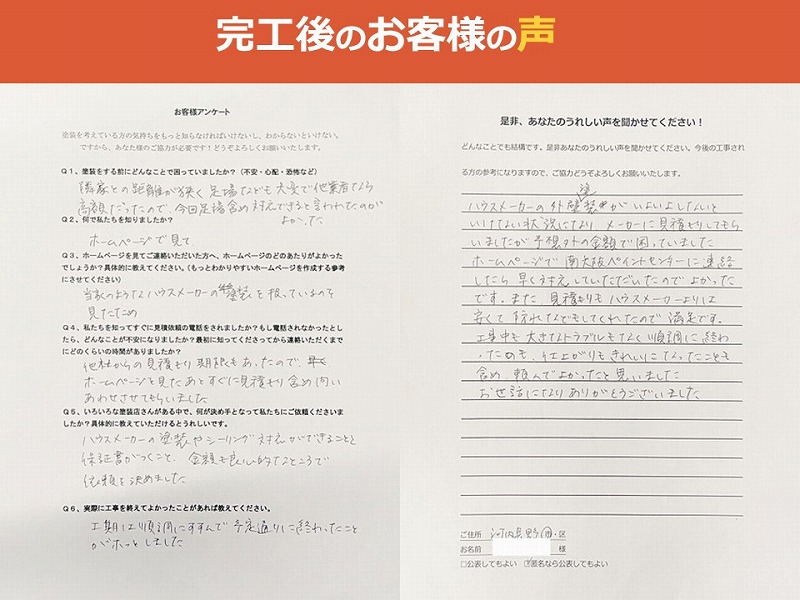 完工後のお客様の声
お客様アンケート
塗装を考えている方の気持ちをもっと知らなければいけないし、わからないといけない。
ですから、あなた様のご協力が必要です！どうぞよろしくお願いいたします。
Q1、塗装をする前にどんなことで困っていましたか？（不安・心配・恐怖など）
隣家との距離が狭く足場なども大変で他業者なら
高額だったので、今回足場含め対応できると言われたのが
よかった
Q2、何で私たちを知りましたか？
ホームページで見て
Q3、ホームページを見てご連絡いただいた方へ、ホームページのどのあたりがよかった
でしょうか？具体的に教えてください。（もっとわかりやすいホームページを作成する参考
にさせてください）
当家のようなハウスメーカーの塗装を扱っているのを
見たため
Q4、私たちを知ってすぐに見積依頼の電話をされましたか？もし電話されなかったとし
たら、どんなことが不安になりましたか？最初に知ってくださってから連絡いただくまで
にどのくらいの時間がありましたか？
他社からの見積もり期限もあったので、早く
ホームページを見たあとすぐに見積もり含め問い
あわせさせてもらいました
Q5、いろいろな塗装店さんがある中で、何が決め手となって私たちにご依頼くださいま
したか？具体的に教えていただけるとうれしいです。
ハウスメーカーの塗装やシーリング対応ができることと
保証書がつくこと、金額も良心的なところで
依頼を決めました
Q6、実際に工事を終えてよかったことがあれば教えてください。
工期は順調にすすんで予定通りに終わったこと
がホッとしました
是非、あなたのうれしい声を聞かせてください！
どんなことでも結構です。是非あなたのうれしい声を聞かせてください。今後の工事され
る方の参考になりますので、ご協力どうぞよろしくお願いいたします。
ハウスメーカーの外壁塗装がいよいよしないと
いけない状況になり メーカーに見積もりしてもら
いましたが予想外の金額で困っていました
ホームページで南大阪ペイントセンターに連絡
したら早く対応していただいたのでよかった
です。また 見積もりもハウスメーカーよりは
安くて 防水などもしてくれたので 満足です。
工事中も大きなトラブルもなく順調に終わ
ったのも、仕上がりもきれいになったことも
含め、頼んでよかったと思いました
お世話になりありがとうございました
ご住所 河内長野市・区
お名前 様
□公表してもよい ☑匿名なら公表してもよい